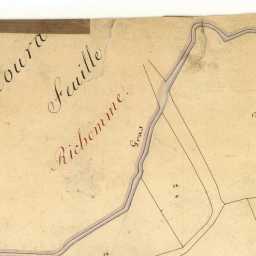 oura
Feuille
Richomme.
Gras